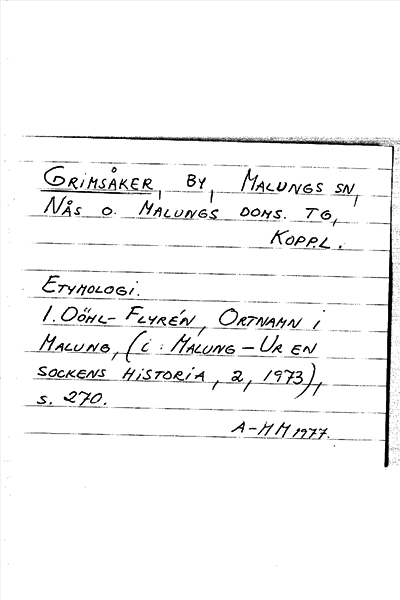 GRIMSÅKER, BY, MALUNGS SN,
NÅS O. MALUNGS DOMS. TG,
KOPP.L.
ETYMOLOGI.
I. DÖHL-FLYRÉN, ORTNAMN I
MALUNG, (i: MALUNG – UR EN
SOCKENS HISTORIA, 2, 1973),
s. 270.
A-MM 1977.